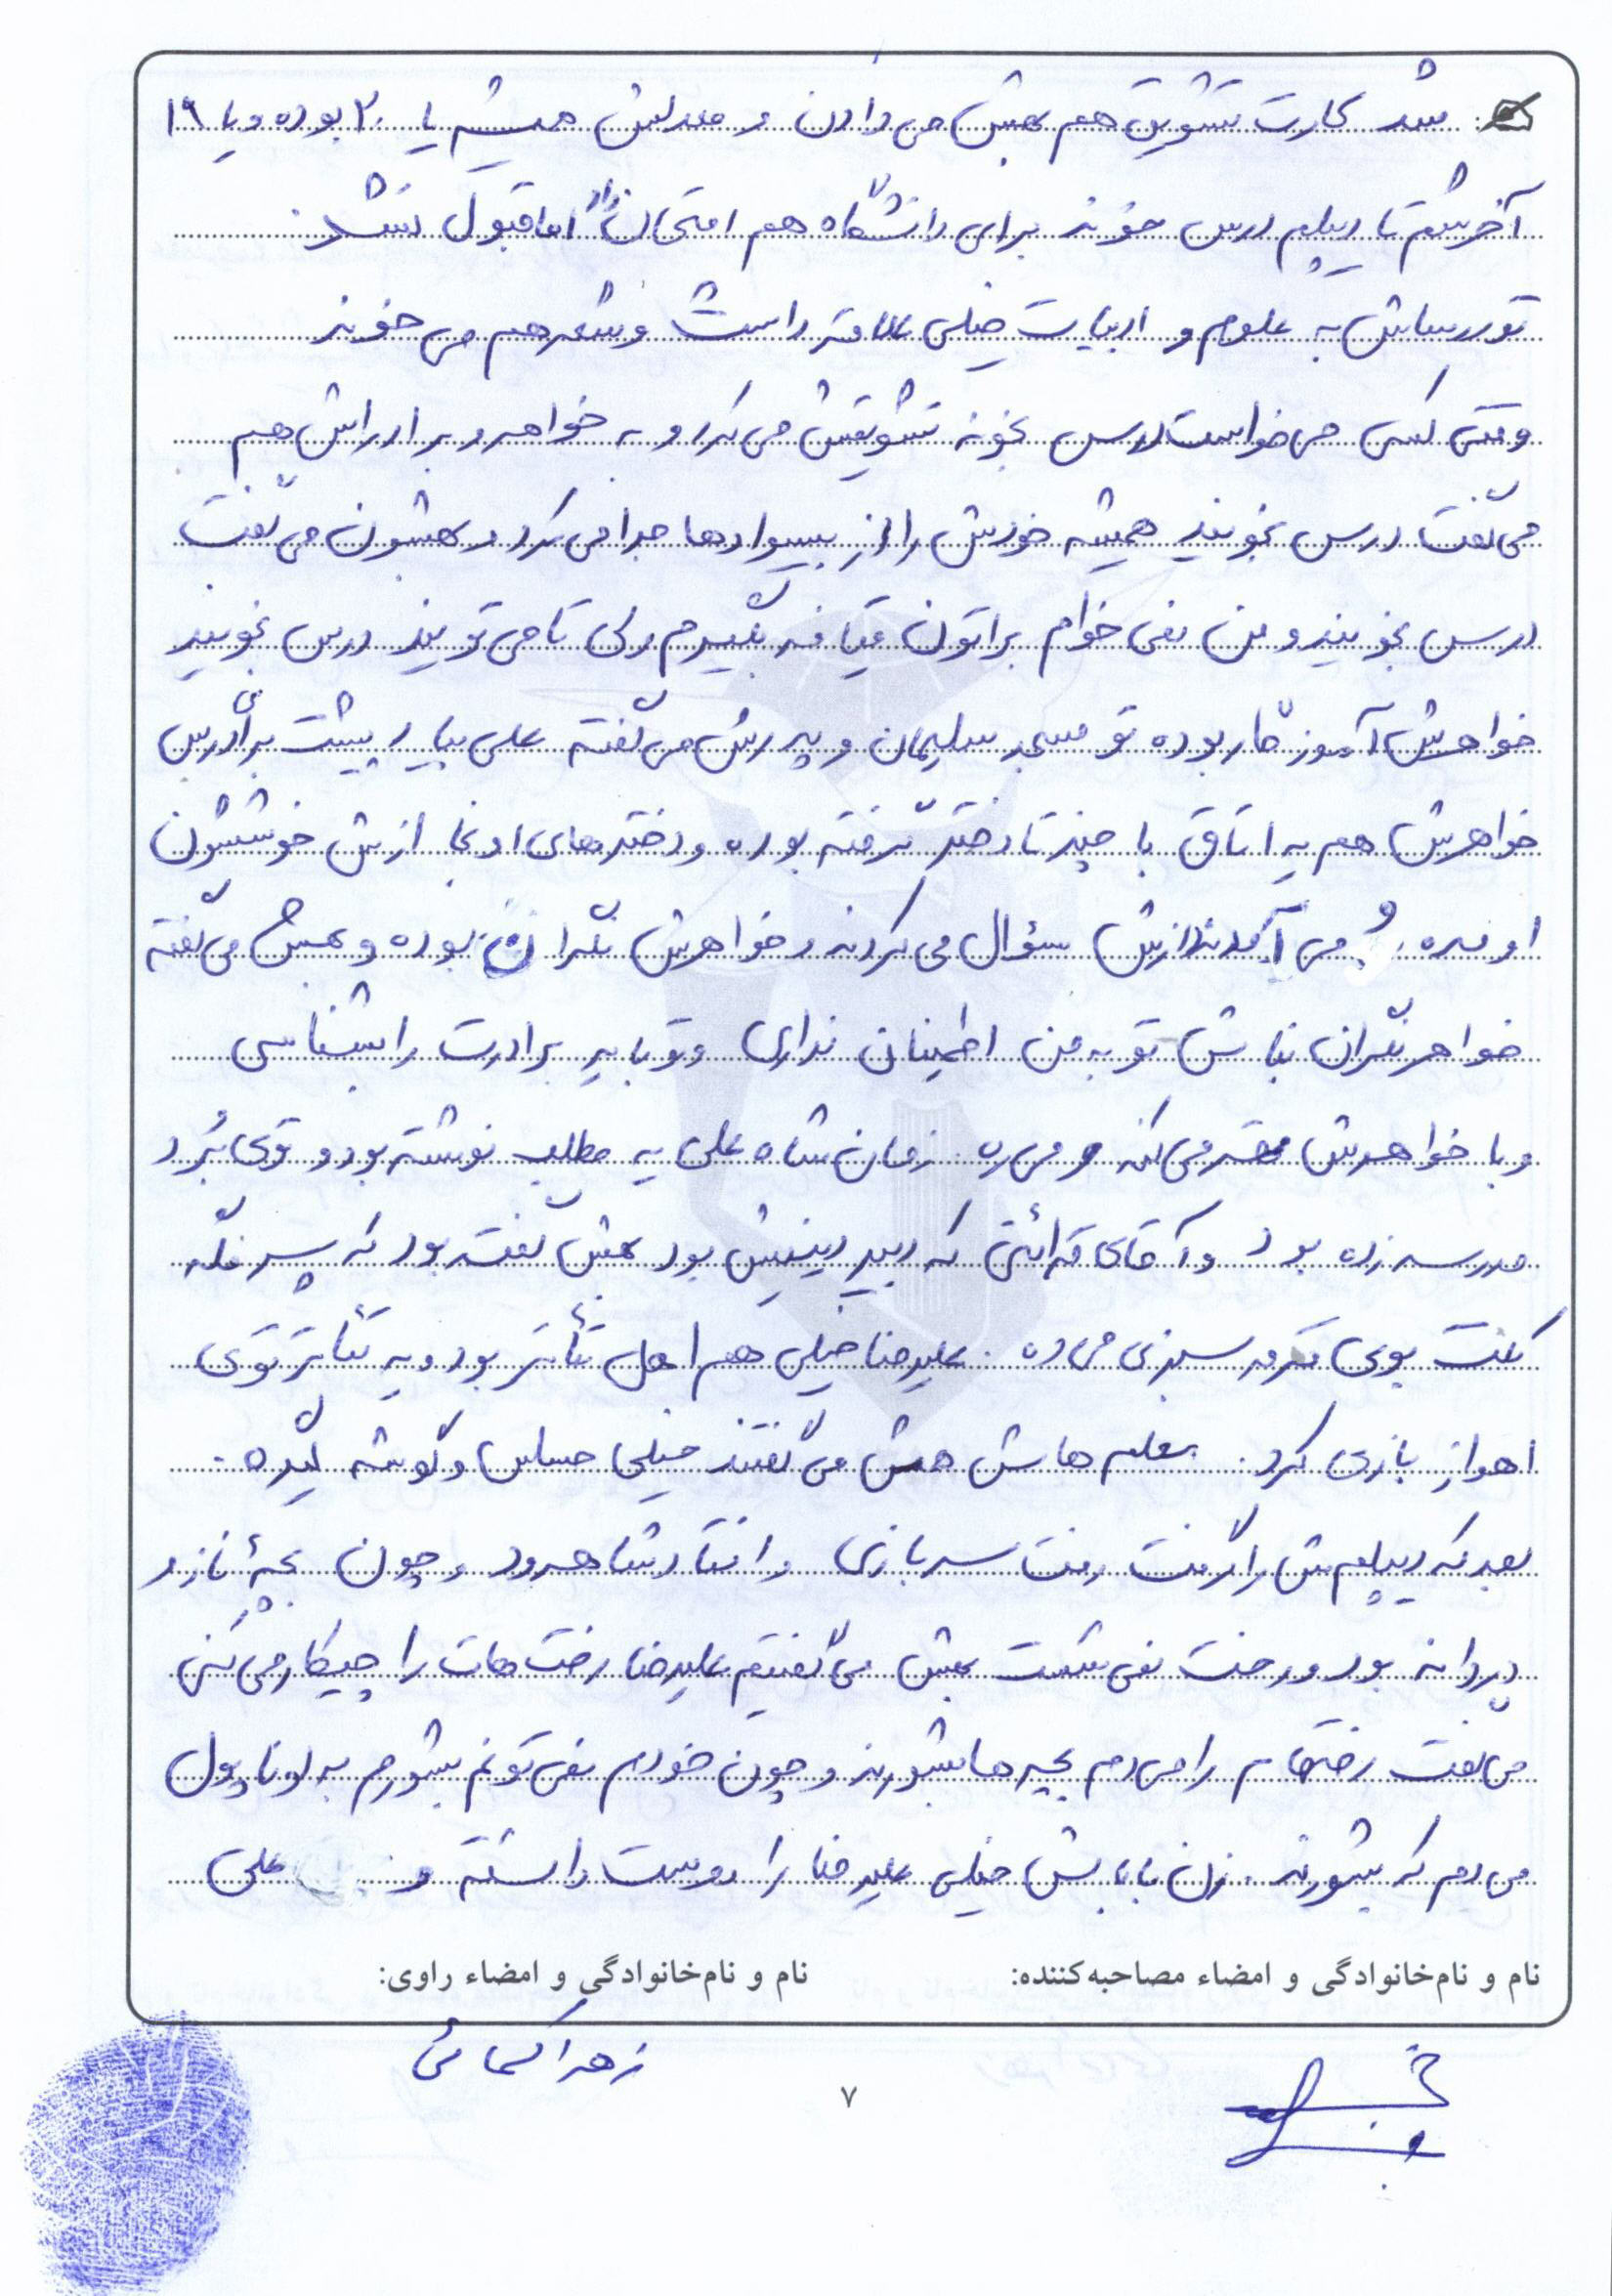 شد کارت تشویق هم بهش می دادن و معدلش همیشه یا ۲۰ بوده و یا ۱۹
آخرشم تا دیپلم درس خوند برای دانشگاه هم امتحان داد اما قبول نشد.
تو درساش به علوم و ادبیات خیلی علاقه داشت و شعر هم می خوند
وقتی کسی می خواست درس بخونه تشویقش می کرد و به خواهر و برادراش هم
می گفت درس بخونید همیشه خودش را از بیسوادها جدا می کرد و بهشون می گفت
درس بخونید و من نمی خوام براتون قیافه بگیرم ولی تا می تونید درس بخونید
خواهرش آموزگار بوده تو مسجد سلیمان و پدرش می گفته علی بیاد پیشت برای درس
خواهرش هم یه اتاق با چندتا دختر گرفته بوده و دخترهای اونجا ازش خوششون
اومده و می آمدند ازش سؤال می کردند و خواهرش نگران بوده و بهش می گفته
خواهر نگران نباش تو به من اطمینان نداری و تو باید برادرت را بشناسی
و با خواهرش قهر می کنه و می ره. زمان شاه علی یه مطلب نوشته بود و توی بُرد
مدرسه زده بود و آقای قرائتی که دبیر دینیش بود بهش گفته بود که پسر کله
کلت بوی قرمه سبزی می ده. علیرضا خیلی هم اهل تئاتر بود و یه تئاتر توی
اهواز بازی کرد. معلم هاش همش می گفتند خیلی حساس و گوشه گیره.
بعد که دیپلمش را گرفت رفت سربازی و افتاد شاهرود و چون بچهٔ نازو
دردانه بود و رخت نمی شست بهش می گفتیم علیرضا رخت هات را چیکار می کنی
می گفت رختهام را می دم بچه ها بشورند و چون خودم نمی تونم بشورم به اونا پول
می دم که بشورند. زن باباش خیلی علیرضا را دوست داشته و علی
نام و نام‌خانوادگی و امضاء مصاحبه‌کننده: نام و نام‌خانوادگی و امضاء راوی:
زهرا کسائی
۷